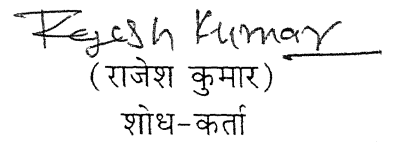 Rajesh Kumar
(राजेश कुमार)
शोध-कर्ता